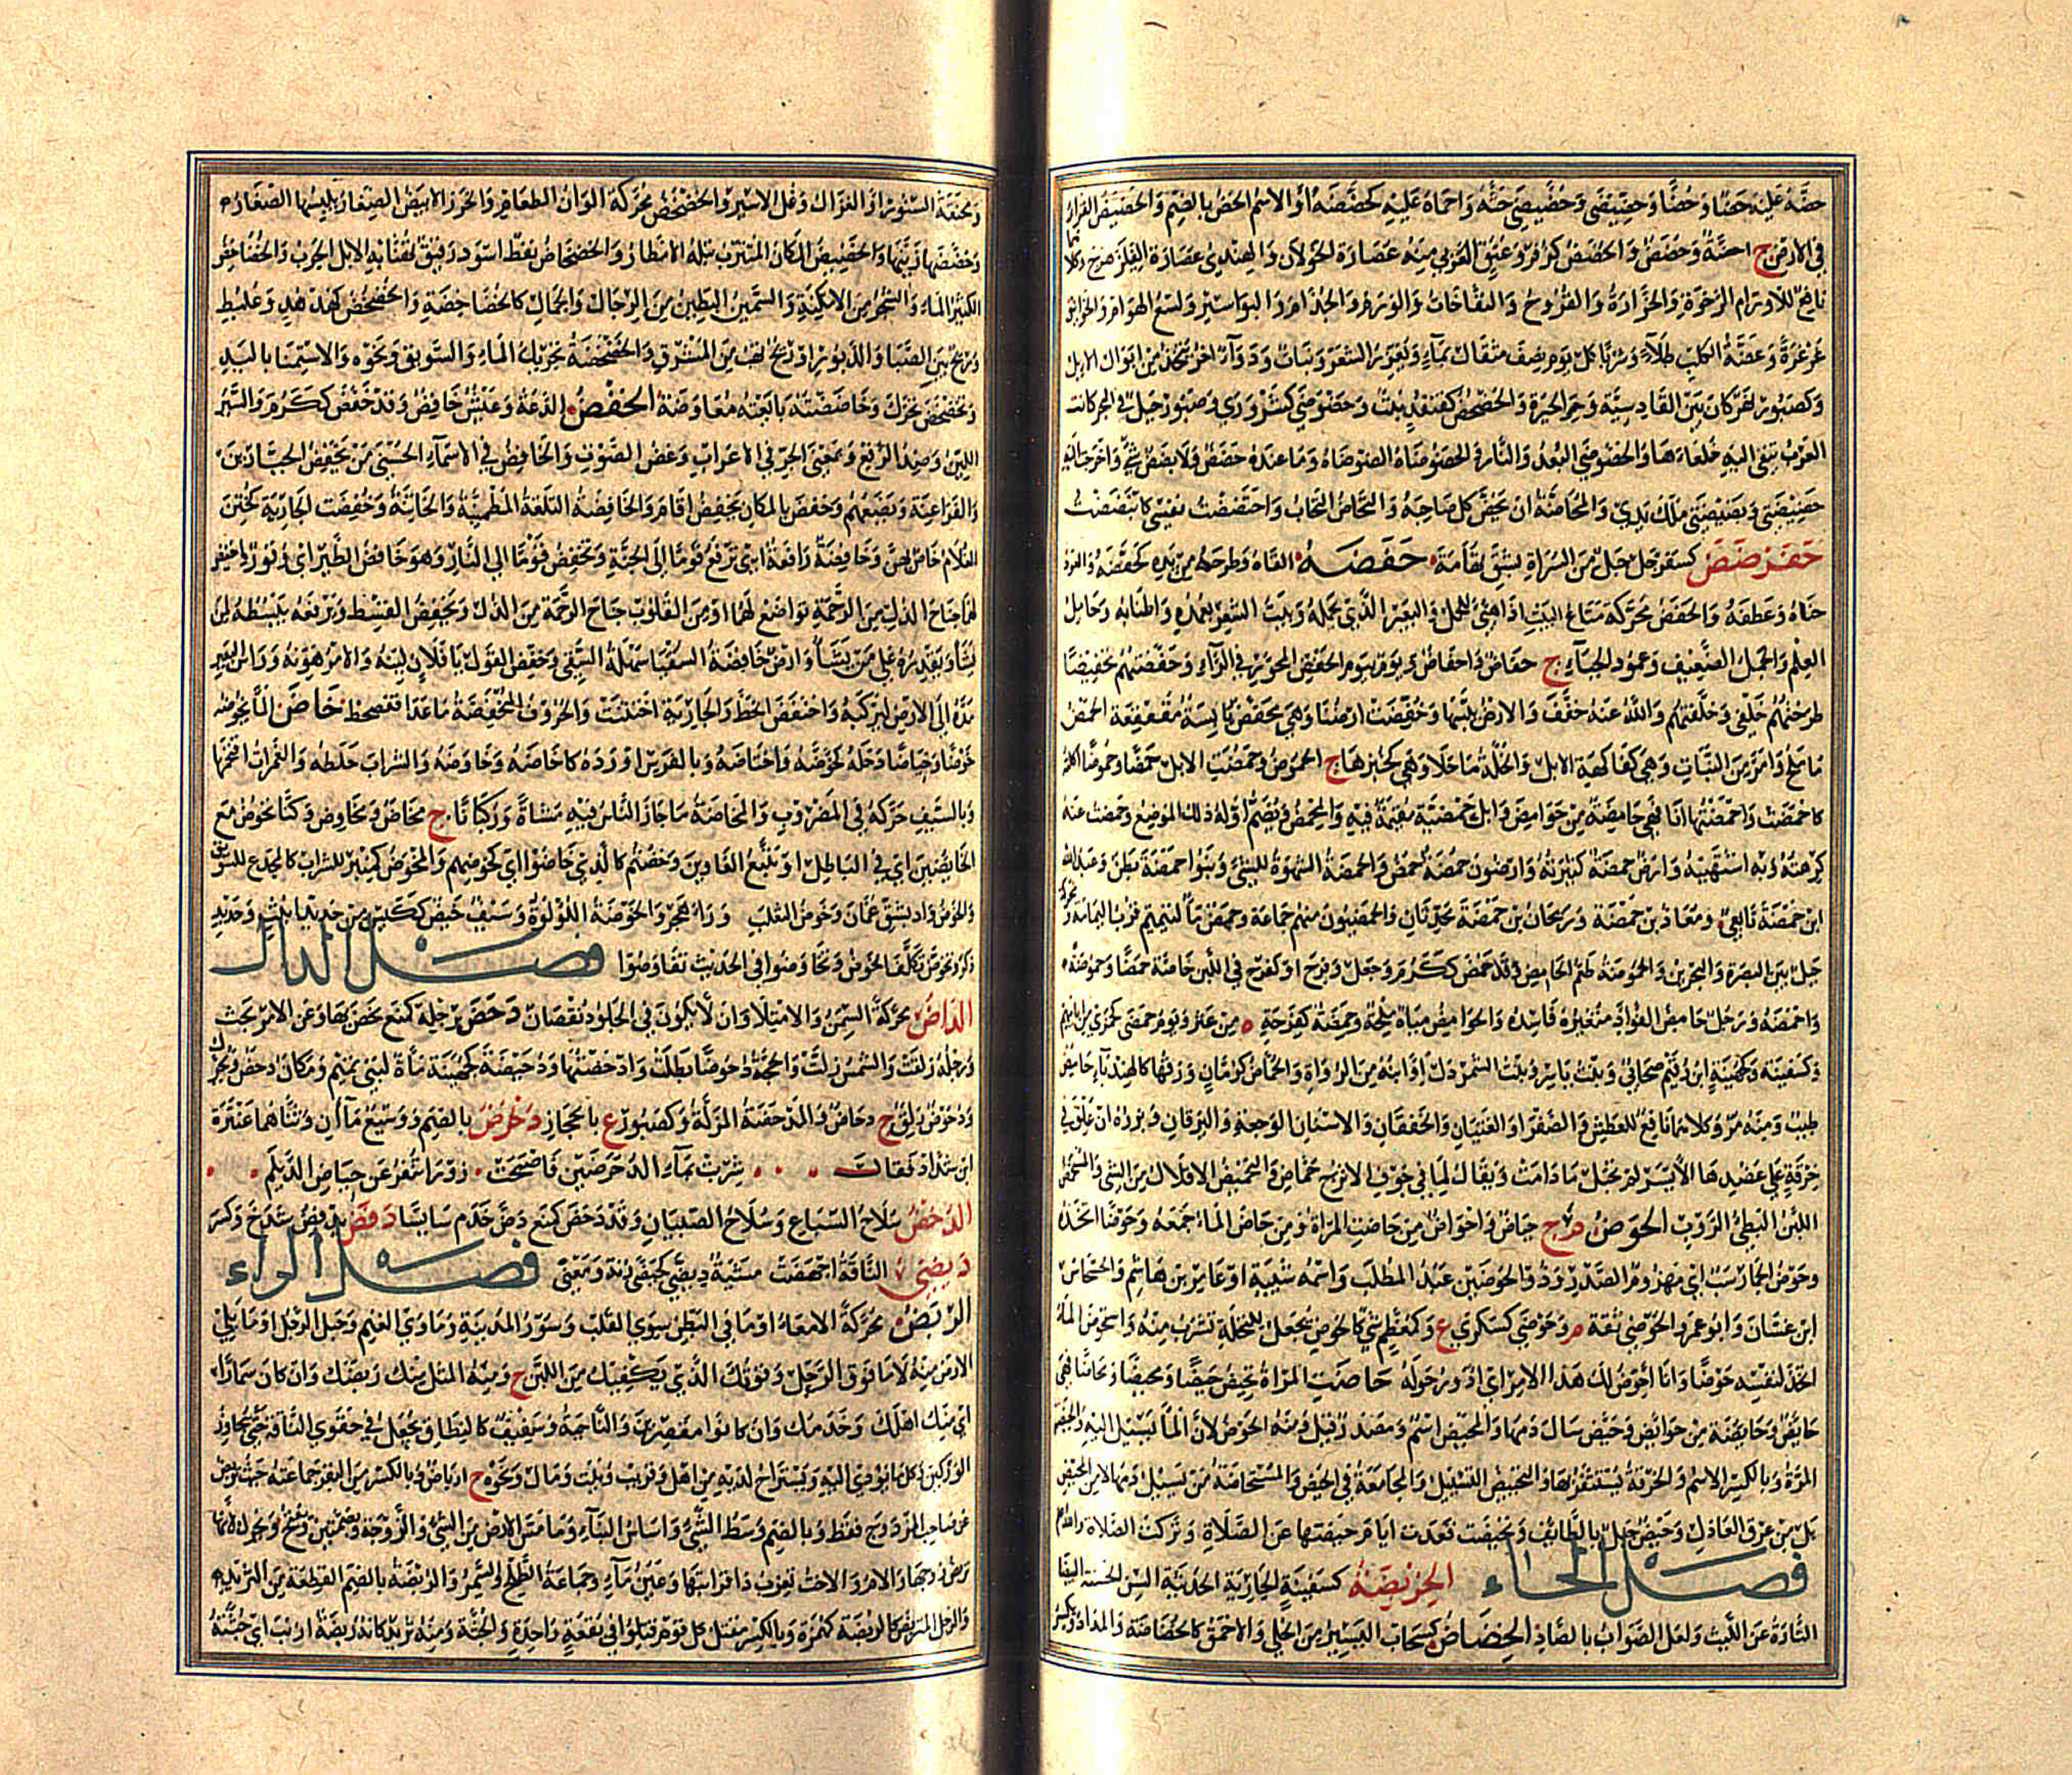 حضه عليه حضا وحضا وحضيضى وحضيضى حثه واحماه عليه كحضضه او الاسم الحض بالضم والحضيض القرار
في الارض ج احضة وحضض والحضض كزفر وعنق العربي منه عصارة الخولان والهندي عصارة الفيلزهرج وكلاهما
نافع للاورام الرخوة والخوارة والقروح والنفاخات والجذام والبواسير ولسع الهوام والخوانيق
غرغرة وعضة الكلب طلاء وشربا كل يوم نصف مثقال بماء ويغزر الشعر ونبات ودواء اخر يتخذ من ابوال الابل
وكصبور نهر كان بين القادسية والحيرة والحضحض كقنفذ نبت وحضوضى كشرورى وصبور جبل في البحر كانت
العرب تنفي اليه خلعاءها والحضوضى البعد والنار والحضوضاة الضوضاة وما عنده حضض ولا بضض شيء واخرجت اليه
حضيضتى وبضيضتى ملك يدي والمحاضة ان يحض كل صاحبه والتحاض التحاث واحتضضت نفسي كابتضضت
حفرضض كسفرجل جبل من السراة بشق تهامة حفضه القاه وطرحه من يديه كحفضه والعود
حناه وعطفه والحفض محركة متاع البيت اذا هيئ للحمل والبعير الذي يحمله وبيت الشعر بعمده واطنابه وحامل
العلم والجمل الضعيف وعمود الخباء ج حفاض واحفاض ويوم بيوم الحفض المجور في الراء وحفضتهم تحفيضا
طرحتهم خلفي وخلفتهم والله عنه خفف والارض يبسها وحفضت ارضنا وهي محفض يابسة مقعقعة الحمض
ما ملح وامر من النبات وهي كفاكهة الابل والخلة ما حلا وهي كخبزها ج الحموض وحمضت الابل حمضا وحموضا اكلته
كاحمضت واحمضتها انا فهي حامضة من حوامض وابل حمضية مقيمة فيه والمحمض ويضم اوله ذلك الموضع وحمضت عنه
كرهته وبه اشتهيته وارض حمضة كثيرته وارضون حمض والحمضة الشهوة للشيء وبنو حمضة بطن وعبد الله
ابن حمضة تابعي ومعاذ بن حمضة وريحان بن حمضة محدثان والحمضيون منهم جماعة وحمض ماء لتميم قرب اليمامة
جبل بين البصرة والبحرين والحموضة طعم الحامض وقد حمض ككرم وجعل وفرح او كفرح في اللبن خاصة حمضا وحموضة
واحمضه ورجل حامض الفؤاد متغيره فاسده والحوامض مياه ملحة وحمضة كفرحة ة من عثر ويوم حمضى كجمزى من ايامهم
وكسفينة وكجهينة ابن رقيم صحابي وبنت ياسر وبنت الشمردل او ابنه من الرواة والحماض كرمان ورقها كالهندباء حامض
طيب ومنه مر وكلاهما نافع للعطش والصفراء والغثيان والخفقان والاسنان الوجعة واليرقان وبزره ان علق في
خرقة على عضدها الايسر لم تحبل ما دامت ويقال لما في جوف الاترج حماض والتحميض الاقلال من الشيء والمستحمض
اللبن البطيء الروب الحوض م ج حياض واحواض من حاضت المراة ومن حاض الماء جمعه وحوضا اتخذه
وحوض الحمار سب اي مهزوم الصدر وذو الحوضين عبد المطلب واسمه شيبة او عامر بن هاشم والخشخاش
ابن غسان وابو عمر الحوضي ثقة م وحوضى كسكرى ع وكمعظم شيء كالحوض يجعل للنخلة تشرب منه واستحوض الماء
اتخذ لنفسه حوضا وانا احوض لك هذا الامر اي ادور حوله حاضت المراة تحيض حيضا ومحيضا ومحاضا فهي
حائض وحائضة من حوائض وحيض سال دمها والمحيض اسم ومصدر قيل ومنه الحوض لان الماء يسيل اليه والحيضة
المرة وبالكسر الاسم والخرقة تستثفر بها والتحييض التسييل والمجامعة في الحيض والمستحاضة من يسيل دمها لا من الحيض
بل من عرق العاذل وحيض جبل بالطائف وتحيضت قعدت ايام حيضتها عن الصلاة وتركت الصلاة والله اعلم
فصل الخاء الخريضة كسفينة الجارية الحديثة السن الحسنة البيضاء
التارة عن الليث ولعل الصواب بالصاد الخضاض كسحاب اليسير من الحلي والاحمق كالخضاضة والمداد ويكسر
ومخنقة السنور او الغزال وغل الاسير والخضض محركة الوان الطعام والخرز الابيض الصغار يلبسها الصغار
وخضضها زينها والخضيض المكان المترب تبله الامطار والخضخاض نفط اسود رقيق تهنا به الابل الجرب والخضاخض
الكثير الماء والشجر من الامكنة والسمين البطين من الرجال والجمال كالخضاخضة والخضخض كهدهد وعلبط
وريح بين الصبا والدبور او ريح تهب من المشرق والخضخضة تحريك الماء والسويق ونحوه والاستمناء باليد
وتخضخض تحرك وخاضضته بايعته معاوضة الخفض الدعة وعيش خافض وقد خفض ككرم والسير
اللين وضد الرفع وبمعنى الجر في الاعراب وغض الصوت والخافض في الاسماء الحسنى من يخفض الجبارين
والفراعنة ويضعهم وخفض بالمكان يخفض اقام والخافضة التلعة المطمئنة والخاتنة وخفضت الجارية كختن
الغلام خاص بهن وخافضة رافعة اي ترفع قوما الى الجنة وتخفض قوما الى النار وهو خافض الطير اي وقور واخفض
لهما جناح الذل من الرحمة تواضع لهما او من المقلوب جناح الرحمة من الذل ويخفض القسط ويرفعه يبسطه لمن
يشا ويقدره على من يشا وارض خافضة السقيا سهلة السقي وخفض القول يا فلان لينه والامر هونه وراس البعير
مده الى الارض ليركبه وانخفض انحط والجارية اختتنت والحروف المنخفضة ما عدا قغصخظ خاض الماء يخوضه
خوضا وخياضا دخله كخوضه واختاضه وبالفرس اورده كاخاضه وخاوضه والشراب خلطه والغمرات اقتحمها
وبالسيف حركه في المضروب والمخاضة ما جاز الناس فيه مشاة وركبانا ج مخاض ومخاوض وكنا نخوض مع
الخائضين اي في الباطل او نتبع الغاوين وخضتم كالذي خاضوا اي كخوضهم والمخوض كمنبر للشراب كالمجدح للسويق
والخوض واد بشق عمان وخوض الثعلب وراء هجر والخوضة اللؤلؤة وسيف خيض ككيس من حديد انيث وحديد
ذكر وتخوض تكلف الخوض وتخاوضوا في الحديث تفاوضوا فصل الدال
الداض محركة السمن والامتلا وان لا يكون في الجلود نقصان دحض برجله كمنع فحص بها وعن الامر بحث
ورجله زلقت والشمس زالت والحجة دحوضا بطلت وادحضتها ودحيضة كجهينة ماءة لبني تميم ومكان دحض ويحرك
ودحوض زلق ج دحاض والمدحضة المزلة وكصبور ع بالحجاز دحرض بالضم ووسيع ماءان وثناهما عنترة
ابن شداد فقال شربت بماء الدحرضين فاصبحت زوراء تنفر عن حياض الديلم
الدخض سلاح السباع وسلاح الصبيان وقد دخض كمنع دض خدم سايسا دفض يدفض شدخ وكسر
ديضى الناقة اجهضت مشية ديضى كحيفى زنة ومعنى فصل الراء
الربض محركة الامعاء او ما في البطن سوى القلب وسور المدينة وماوى الغنم وحبل الرحل او ما يلي
الارض منه لا ما فوق الرحل وقوتك الذي يكفيك من اللبن ج ومنه المثل منك ربضك وان كان سمارا
اي منك اهلك وخدمك وان كانوا مقصرين والناحية وسفيف كالنطاق يجعل في حقوي الناقة حتى يجاوز
الوركين وكل ما يؤوى اليه ويستراح لديه من اهل وقريب وبيت ومال ونحوه ج ارباض وبالكسر من البقر جماعته حيث تربض
عن صاحب المزدوج فقط وبالضم وسط الشيء واساس البناء وما مس الارض من الشيء والزوجة وبضمتين ويفتح ويحرك لانها
تربض زوجها والام والاخت تعزب ذا قرابتها وعين ماء وجماعة الطلح والسمر والربضة بالضم القطعة من الثريد
والرجل المتربض كالربضة كهمزة وبالكسر مقتل كل قوم قتلوا في بقعة واحدة والجثة ومنه ثريد كانه ربضة ارنب اي جثته